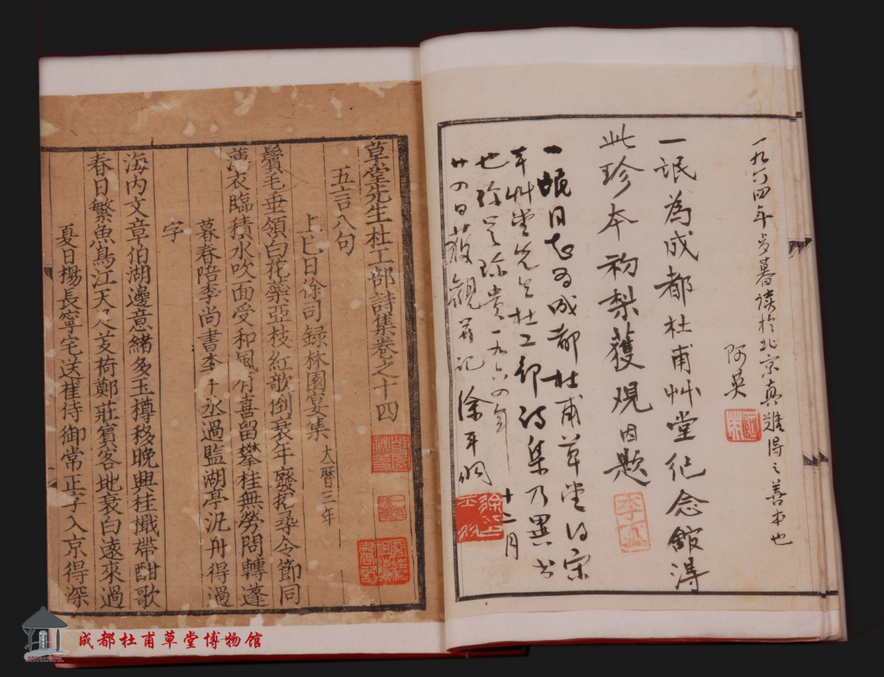 一九六四年岁暮读於北京真難得之善本也
阿英
一氓為成都杜甫艸堂纪念館淂
此珍本初梨獲观因题
一氓同志为成都杜甫草堂得宋
本艸堂先生杜工部诗集乃異书
也珍贵一九六四年十二月
廿四日获觀并记 徐平羽
草堂先生杜工部詩集卷之十四
五言八句
上巳日徐司録林園宴集 大曆三年
鬢毛垂領白花藥亞枝紅歌倒衰年廢招尋令節同
薄衣臨積水吹面受和風有喜留攀桂無勞問轉蓬
暮春陪李尚書李中丞過監湖亭泛舟得過
字
海内文章伯湖邊意緒多玉樽移晚興桂檝帶酣歌
春日繁魚鳥江天足芰荷鄭莊賓客地衰白遠來過
夏日楊長寧宅送崔侍御常正字入京得深
成都杜甫草堂博物館